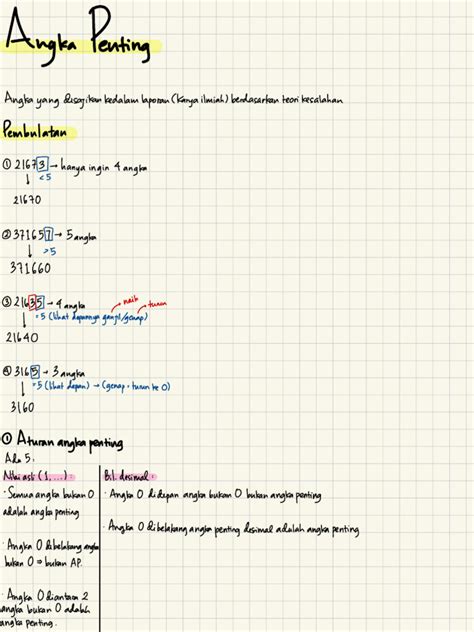 Angka Penting
Angka yang disajikan kedalam laporan (karya ilmiah) berdasarkan teori kesalahan
Pembulatan
① 21673 → hanya ingin 4 angka
↓ <5
21670
② 371657 → 5 angka
↓ >5
371660
③ 21635 → 4 angka naik turun
↓ =5 (lihat depannya ganjil/genap)
21640
④ 3165 → 3 angka
↓ =5 (lihat depan) → (genap = turun ke 0)
3160
① Aturan angka penting
Ada 5.
Nilai asli (1, ...) :
· Semua angka bukan 0
adalah angka penting
· Angka 0 dibelakang angka
bukan 0 ⇒ bukan AP.
· Angka 0 diantara 2
angka bukan 0 adalah
angka penting.
Bil. desimal :
· Angka 0 didepan angka bukan 0 bukan angka penting
· Angka 0 dibelakang angka penting desimal adalah angka penting